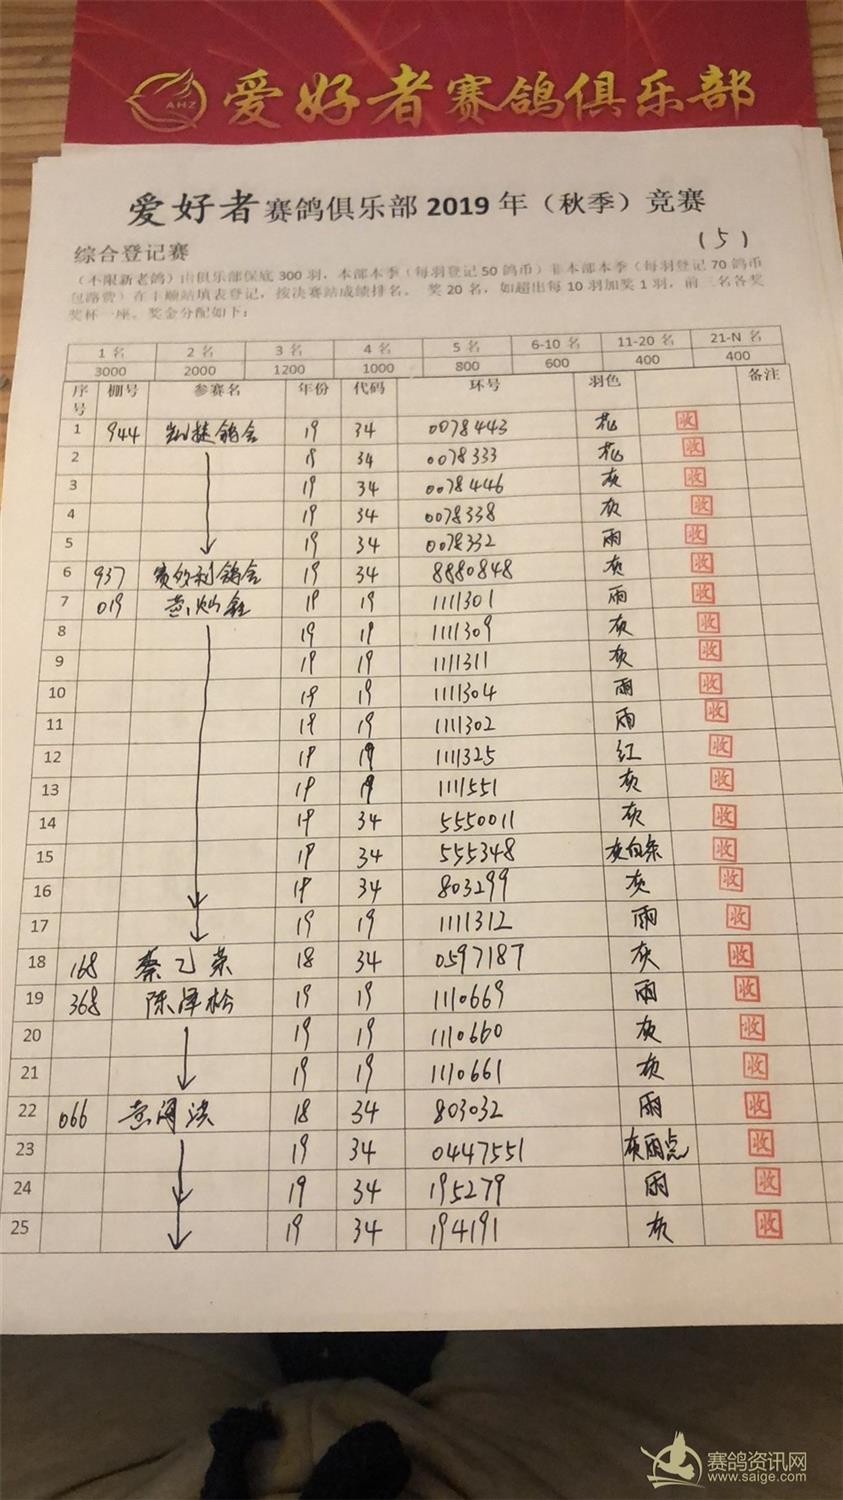 AHZ 爱好者赛鸽俱乐部
爱好者赛鸽俱乐部2019年（秋季）竞赛
(5)
综合登记赛
（不限新老鸽）由俱乐部保底300羽，本部本季（每羽登记50鸽币）非本部本季（每羽登记70鸽币
包路费）在丰顺站填表登记，按决赛站成绩排名。 奖20名，如超出每10羽加奖1羽，前三名各奖
奖杯一座。奖金分配如下：
1名 2名 3名 4名 5名 6-10名 11-20名 21-N名
3000 2000 1200 1000 800 600 400 400
序号 棚号 参赛名 年份 代码 环号 羽色 备注
1 944 凯捷鸽舍 19 34 0078443 花 收
2 19 34 0078333 花 收
3 19 34 0078446 灰 收
4 19 34 0078338 灰 收
5 19 34 0078332 雨 收
6 937 赛外利鸽舍 19 34 8880848 灰 收
7 019 黄灿钰 19 19 1111301 雨 收
8 19 19 1111309 灰 收
9 19 19 1111311 灰 收
10 19 19 1111304 雨 收
11 19 19 1111302 雨 收
12 19 19 1111325 红 收
13 19 19 1111551 灰 收
14 19 34 5550011 灰 收
15 19 34 555348 灰白条 收
16 19 34 803299 灰 收
17 19 19 1111312 雨 收
18 168 蔡乙荣 18 34 0597187 灰 收
19 368 陈泽松 19 19 1110669 雨 收
20 19 19 1110660 灰 收
21 19 19 1110661 灰 收
22 066 黄海滨 18 34 803032 雨 收
23 19 34 0447551 灰雨点 收
24 19 34 195279 雨 收
25 19 34 194191 灰 收
赛鸽资讯网
www.saige.com